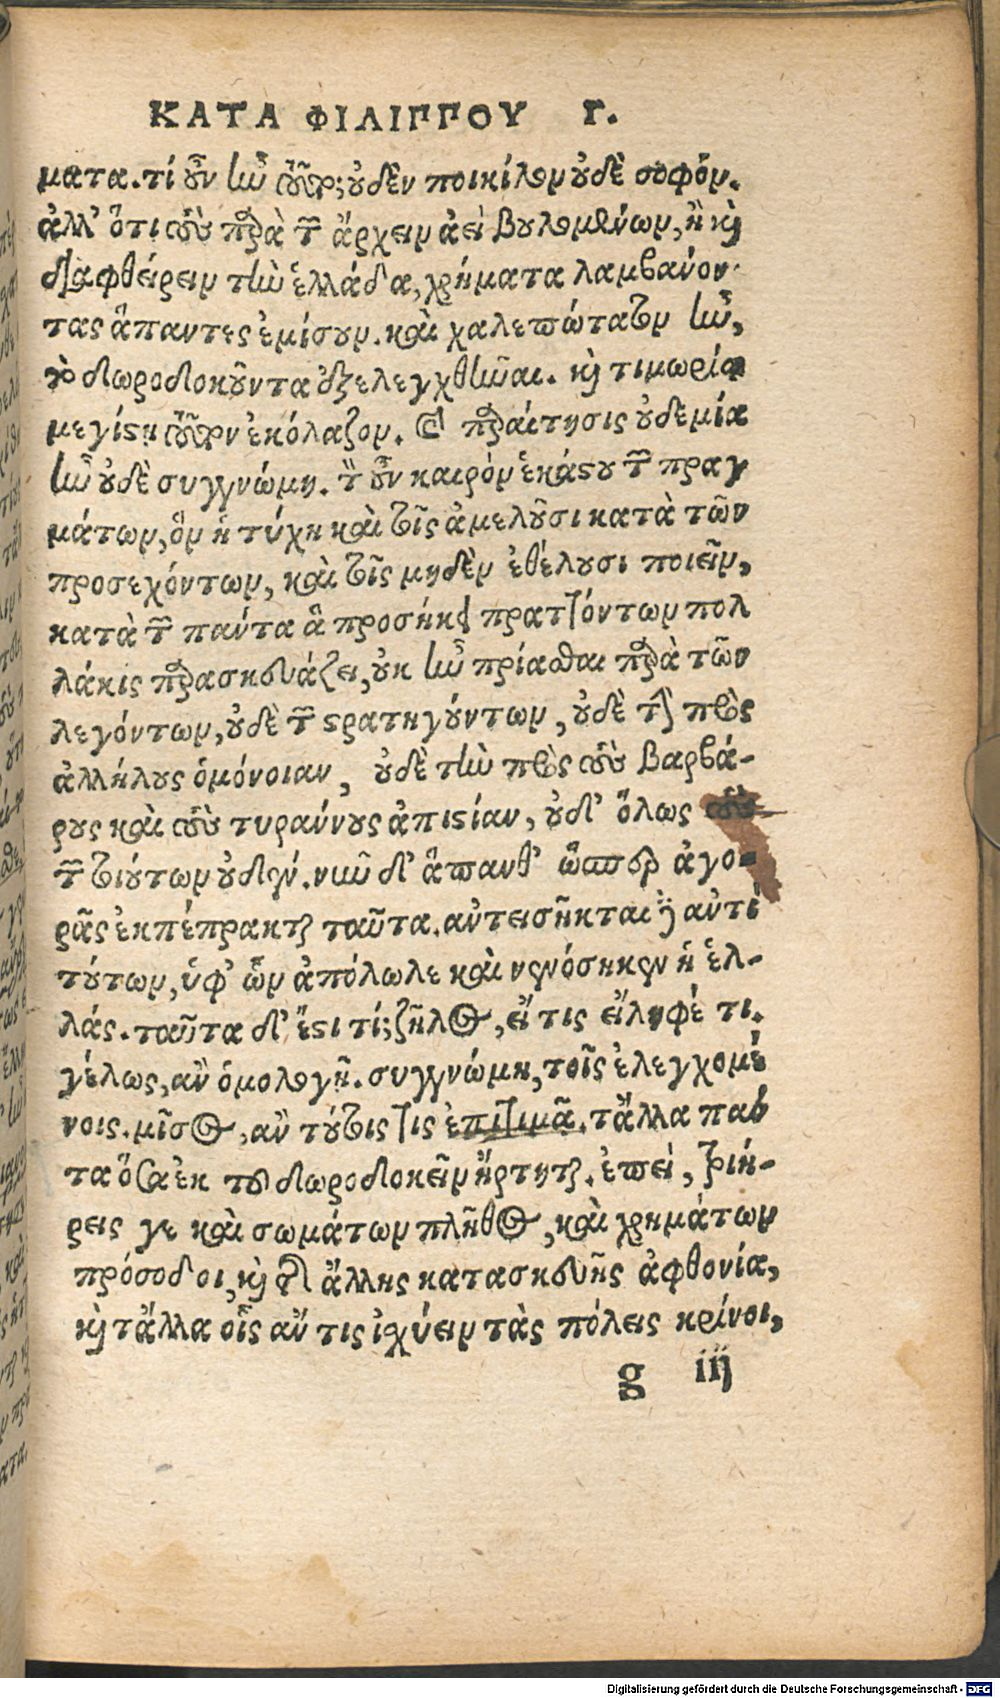 ΚΑΤΑ ΦΙΛΙΠΠΟΥ Γ.
ματα. τί οὖν ἦν τοῦτο; οὐδὲν ποικίλον οὐδὲ σοφόν.
ἀλλ' ὅτι τοὺς παρὰ τῶν ἄρχειν ἀεὶ βουλομένων, ἢ καὶ
διαφθείρειν τὴν ἑλλάδα, χρήματα λαμβάνον-
τας ἅπαντες ἐμίσουν. καὶ χαλεπώτατον ἦν,
τὸ δωροδοκοῦντα ἐξελεγχθῆναι. καὶ τιμωρίᾳ
μεγίστῃ τοῦτον ἐκόλαζον. καὶ παραίτησις οὐδεμία
ἦν οὐδὲ συγγνώμη. τὸν οὖν καιρὸν ἑκάστου τῶν πραγ
μάτων, ὃν ἡ τύχη καὶ τοῖς ἀμελοῦσι κατὰ τῶν
προσεχόντων, καὶ τοῖς μηδὲν ἐθέλουσι ποιεῖν,
κατὰ τῶν πάντα ἃ προσήκει πραττόντων πολ
λάκις παρασκευάζει, οὐκ ἦν πρίασθαι παρὰ τῶν
λεγόντων, οὐδὲ τῶν στρατηγούντων, οὐδὲ τὴν πρὸς
ἀλλήλους ὁμόνοιαν, οὐδὲ τὴν πρὸς τοὺς βαρβά-
ρους καὶ τοὺς τυράννους ἀπιστίαν, οὐδ' ὅλως
τῶν τοιούτων οὐδέν. νῦν δ' ἅπανθ' ὥσπερ ἀγο-
ρᾶς ἐκπέπρακται ταῦτα. ἀντεισῆκται δὲ ἀντὶ
τούτων, ὑφ' ὧν ἀπόλωλε καὶ νενόσηκεν ἡ ἑλ-
λάς. ταῦτα δ' ἔστι τί; ζῆλος, εἴ τις εἴληφέ τι.
γέλως, ἂν ὁμολογῇ. συγγνώμη, τοῖς ἐλεγχομέ
νοις. μῖσος, ἂν τούτοις τις ἐπιτιμᾷ. τἄλλα πάν
τα ὅσα ἐκ τοῦ δωροδοκεῖν ἤρτηται. ἐπεὶ, τριή-
ρεις γε καὶ σωμάτων πλῆθος, καὶ χρημάτων
πρόσοδοι, καὶ τῆς ἄλλης κατασκευῆς ἀφθονία,
καὶ τἄλλα οἷς ἄν τις ἰσχύειν τὰς πόλεις κρίνοι,
g iij
Digitalisierung gefördert durch die Deutsche Forschungsgemeinschaft - DFG